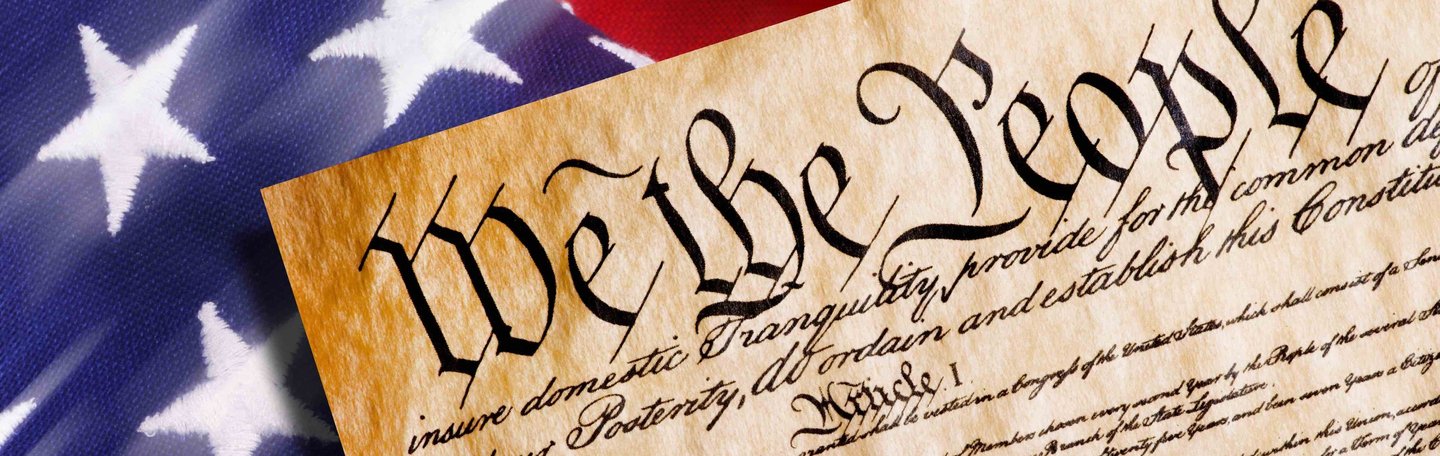 We the People of
insure domestic Tranquility, provide for the common de
Posterity, do ordain and establish this Constitu
Article I
granted shall be vested in a Congress of the United States, which shall consist of a Sena
Members chosen every second Year by the People of the several Sta
Branch of the State Legislature.
twenty five Years, and been seven Years a Citize
within this Union, accord
for a Term of Year